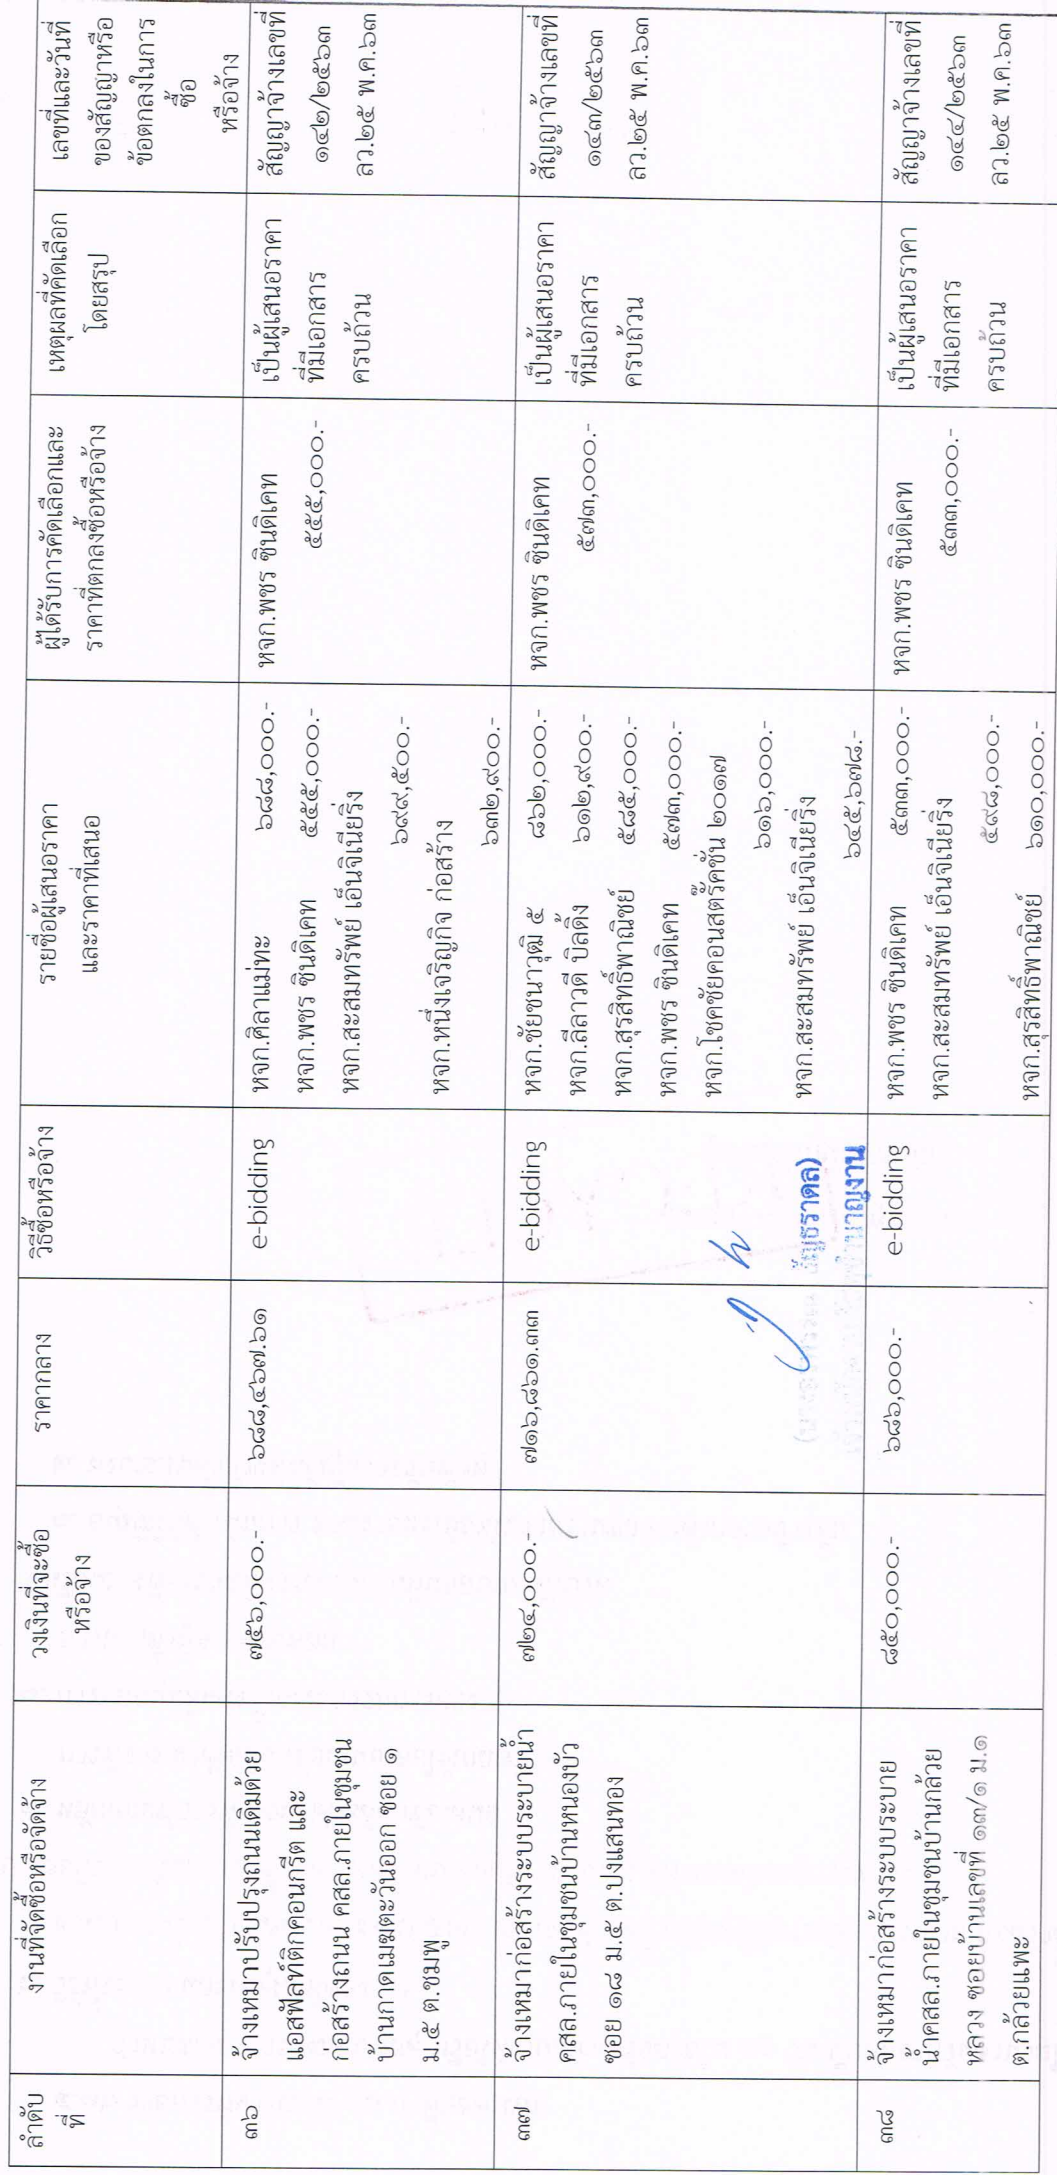 ลำดับ
ที่
งานที่จัดซื้อหรือจัดจ้าง
วงเงินที่จะซื้อ
หรือจ้าง
ราคากลาง
วิธีซื้อหรือจ้าง
รายชื่อผู้เสนอราคา
และราคาที่เสนอ
ผู้ได้รับการคัดเลือกและ
ราคาที่ตกลงซื้อหรือจ้าง
เหตุผลที่คัดเลือก
โดยสรุป
เลขที่และวันที่
ของสัญญาหรือ
ข้อตกลงในการ
ซื้อ
หรือจ้าง
๓๖
จ้างเหมาปรับปรุงถนนเดิมด้วย
แอสฟัลท์ติกคอนกรีต และ
ก่อสร้างถนน คสล.ภายในชุมชน
บ้านกาดเมฆตะวันออก ซอย ๑
ม.๕ ต.ชมพู
๗๕๖,๐๐๐.-
๖๘๘,๔๖๗.๖๑
e-bidding
หจก.ศิลาแม่ทะ ๖๘๘,๐๐๐.-
หจก.พชร ซินดิเคท ๕๕๕,๐๐๐.-
หจก.สะสมทรัพย์ เอ็นจิเนียริ่ง
๖๙๙,๕๐๐.-
หจก.หนึ่งเจริญกิจ ก่อสร้าง
๖๓๒,๙๐๐.-
หจก.พชร ซินดิเคท
๕๕๕,๐๐๐.-
เป็นผู้เสนอราคา
ที่มีเอกสาร
ครบถ้วน
สัญญาจ้างเลขที่
๑๔๒/๒๕๖๓
ลว.๒๕ พ.ค.๖๓
๓๗
จ้างเหมาก่อสร้างระบบระบายน้ำ
คสล.ภายในชุมชนบ้านหนองบัว
ซอย ๑๘ ม.๕ ต.ปงแสนทอง
๗๒๔,๐๐๐.-
๗๑๖,๘๖๑.๓๓
e-bidding
หจก.ชัยชนาวุฒิ ๕ ๘๖๒,๐๐๐.-
หจก.ลีลาวดี บิลดิ้ง ๖๑๒,๙๐๐.-
หจก.สุรสิทธิ์พาณิชย์ ๕๘๕,๐๐๐.-
หจก.พชร ซินดิเคท ๕๗๓,๐๐๐.-
หจก.โชคชัยคอนสตรั๊คชั่น ๒๐๑๗
๖๑๖,๐๐๐.-
หจก.สะสมทรัพย์ เอ็นจิเนียริ่ง
๖๔๕,๖๗๘.-
หจก.พชร ซินดิเคท
๕๗๓,๐๐๐.-
เป็นผู้เสนอราคา
ที่มีเอกสาร
ครบถ้วน
สัญญาจ้างเลขที่
๑๔๓/๒๕๖๓
ลว.๒๕ พ.ค.๖๓
๓๘
จ้างเหมาก่อสร้างระบบระบาย
น้ำคสล.ภายในชุมชนบ้านกล้วย
หลวง ซอยบ้านเลขที่ ๑๓/๑ ม.๑
ต.กล้วยแพะ
๘๕๐,๐๐๐.-
๖๘๖,๐๐๐.-
e-bidding
หจก.พชร ซินดิเคท ๕๓๓,๐๐๐.-
หจก.สะสมทรัพย์ เอ็นจิเนียริ่ง
๕๙๘,๐๐๐.-
หจก.สุรสิทธิ์พาณิชย์ ๖๑๐,๐๐๐.-
หจก.พชร ซินดิเคท
๕๓๓,๐๐๐.-
เป็นผู้เสนอราคา
ที่มีเอกสาร
ครบถ้วน
สัญญาจ้างเลขที่
๑๔๔/๒๕๖๓
ลว.๒๕ พ.ค.๖๓